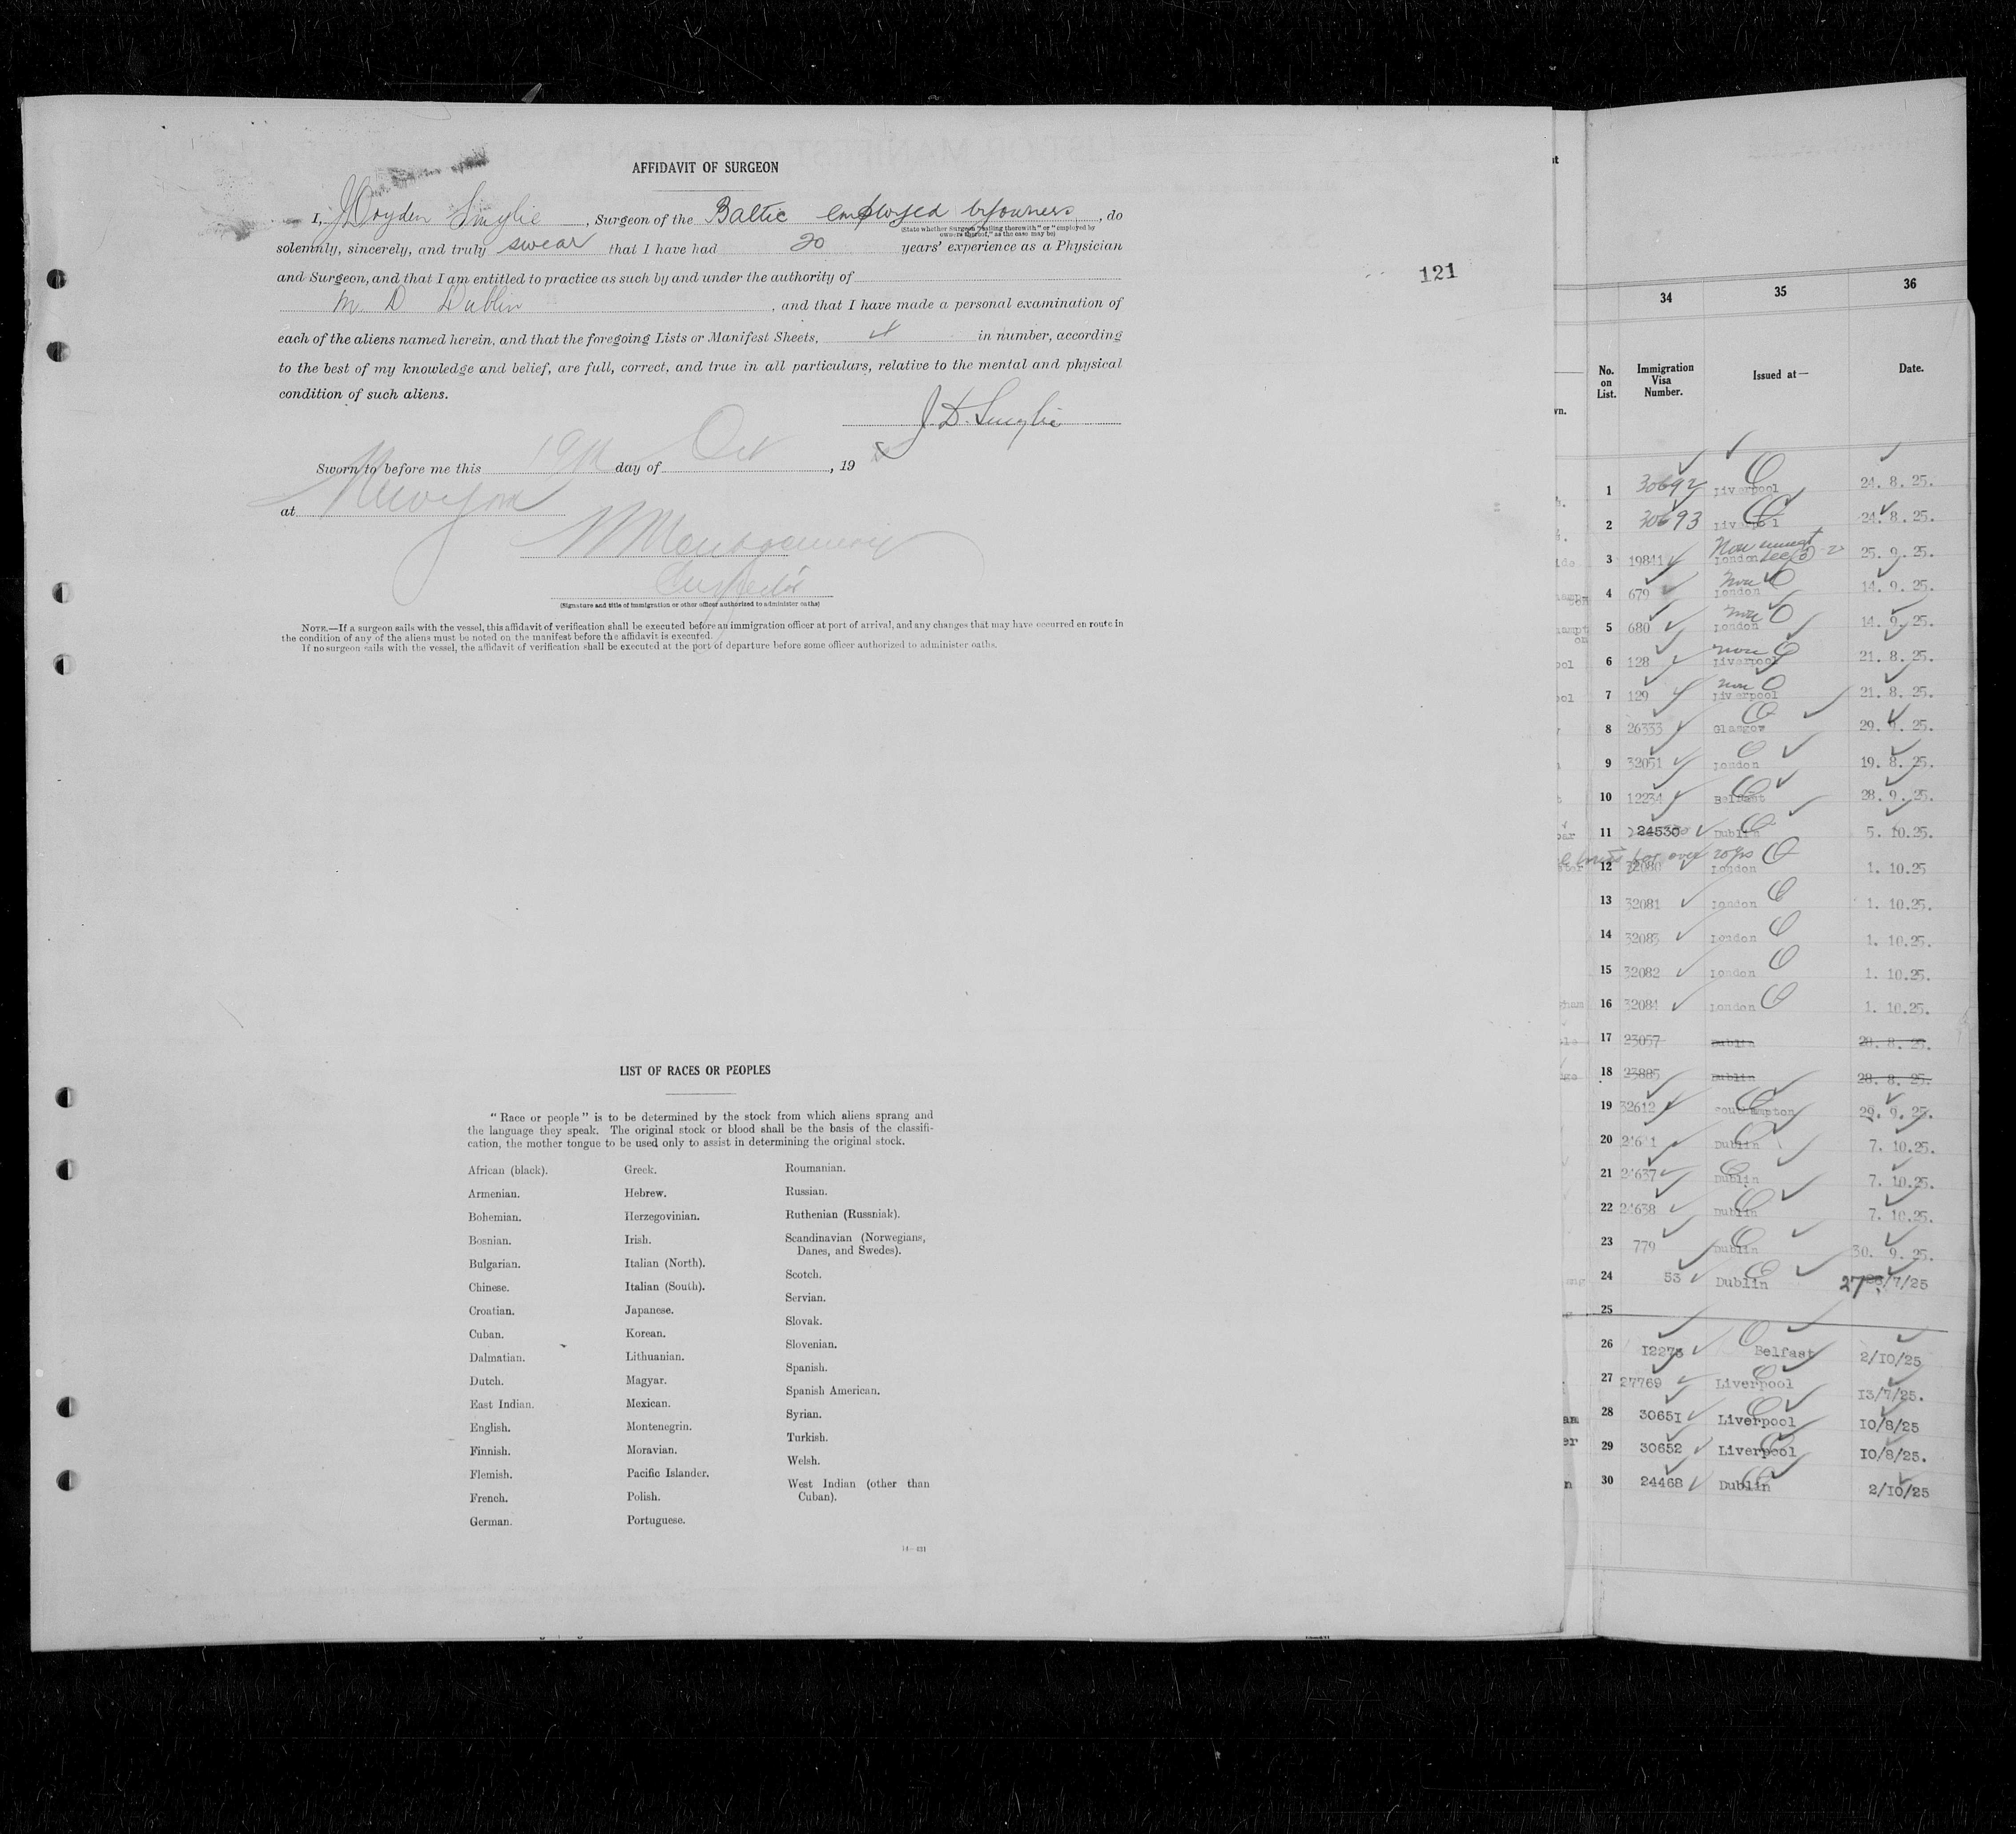 AFFIDAVIT OF SURGEON
I, J Dryden Smylie, Surgeon of the Baltic employed by owners, do
(State whether Surgeon "sailing therewith" or "employed by
owners thereof," as the case may be)
solemnly, sincerely, and truly swear that I have had 20 years' experience as a Physician
and Surgeon, and that I am entitled to practice as such by and under the authority of
M. D Dublin, and that I have made a personal examination of
each of the aliens named herein, and that the foregoing Lists or Manifest Sheets, in number, according
to the best of my knowledge and belief, are full, correct, and true in all particulars, relative to the mental and physical
condition of such aliens.
J. D. Smylie
Sworn to before me this 19th day of Oct, 19
at New York
Inspector
(Signature and title of immigration or other officer authorized to administer oaths)
NOTE.—If a surgeon sails with the vessel, this affidavit of verification shall be executed before an immigration officer at port of arrival, and any changes that may have occurred en route in
the condition of any of the aliens must be noted on the manifest before the affidavit is executed.
If no surgeon sails with the vessel, the affidavit of verification shall be executed at the port of departure before some officer authorized to administer oaths.
121
LIST OF RACES OR PEOPLES
"Race or people" is to be determined by the stock from which aliens sprang and
the language they speak. The original stock or blood shall be the basis of the classifi-
cation, the mother tongue to be used only to assist in determining the original stock.
African (black).
Armenian.
Bohemian.
Bosnian.
Bulgarian.
Chinese.
Croatian.
Cuban.
Dalmatian.
Dutch.
East Indian.
English.
Finnish.
Flemish.
French.
German.
Greek.
Hebrew.
Herzegovinian.
Irish.
Italian (North).
Italian (South).
Japanese.
Korean.
Lithuanian.
Magyar.
Mexican.
Montenegrin.
Moravian.
Pacific Islander.
Polish.
Portuguese.
Roumanian.
Russian.
Ruthenian (Russniak).
Scandinavian (Norwegians,
Danes, and Swedes).
Scotch.
Servian.
Slovak.
Slovenian.
Spanish.
Spanish American.
Syrian.
Turkish.
Welsh.
West Indian (other than
Cuban).
14—431
34 35 36
No. on List. Immigration Visa Number. Issued at— Date.
1 30692 Liverpool 24. 8. 25.
2 30693 Liverpool 24. 8. 25.
3 19841 London 25. 9. 25.
4 679 London 14. 9. 25.
5 680 London 14. 9. 25.
6 128 Liverpool 21. 8. 25.
7 129 Liverpool 21. 8. 25.
8 26333 Glasgow 29. 9. 25.
9 32051 London 19. 8. 25.
10 12234 Belfast 28. 9. 25.
11 24530 Dublin 5. 10.25.
over 20 yrs
12 32080 London 1. 10.25
13 32081 London 1. 10.25.
14 32083 London 1. 10.25.
15 32082 London 1. 10.25.
16 32084 London 1. 10.25.
17 23057 Dublin 28. 8. 25.
18 23885 Dublin 28. 8. 25.
19 32612 Southampton 29. 9. 25.
20 Dublin 7. 10.25.
21 24637 Dublin 7. 10.25.
22 24638 Dublin 7. 10.25.
23 779 Dublin 30. 9. 25.
24 53 Dublin 27/7/25
25
26 12275 Belfast 2/10/25
27 27769 Liverpool 13/7/25.
28 30651 Liverpool 10/8/25
29 30652 Liverpool 10/8/25.
30 24468 Dublin 2/10/25